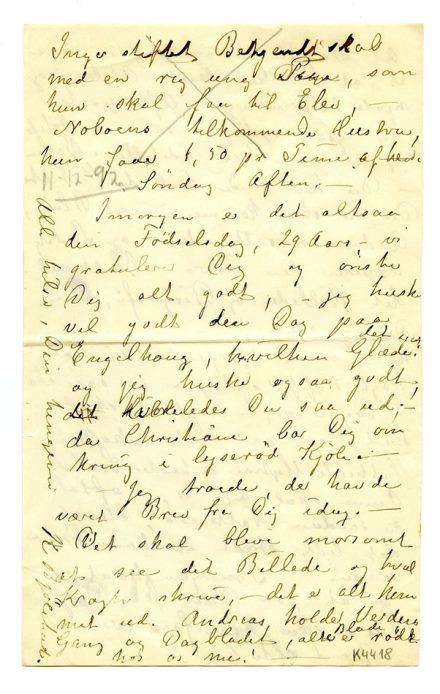 Inga stiftet Bekjendtskab
med en rig ung Pige, som
hun skal faa til Elev, —
Noboens tilkommende Hustru,
hun faar 1,50 pr Time af hende
11-12-92.
Søndag Aften. —
Imorgen er det altsaa
din Fødselsdag, 29 Aar, — vi
gratulere Dig og ønske
Dig alt godt, — jeg huske
vel godt den Dag paa
Engelhaug, hvilken Glæde det var!
og jeg huske ogsaa godt,
hvorledes Du saa ud, —
da Christiane bar Dig om
kring i lyserød Kjole. —
Jeg troede, de havde
været Brev fra Dig idag. —
Det skal bleve morsomt
at see det Billede og hvad
Kragh skrive, — det er alt kom
met ud. Andreas holder Verdens
Gang og Dagbladet, alle Blade er røde
hos os nu!
Alle hilse, Din hengivne
K4418